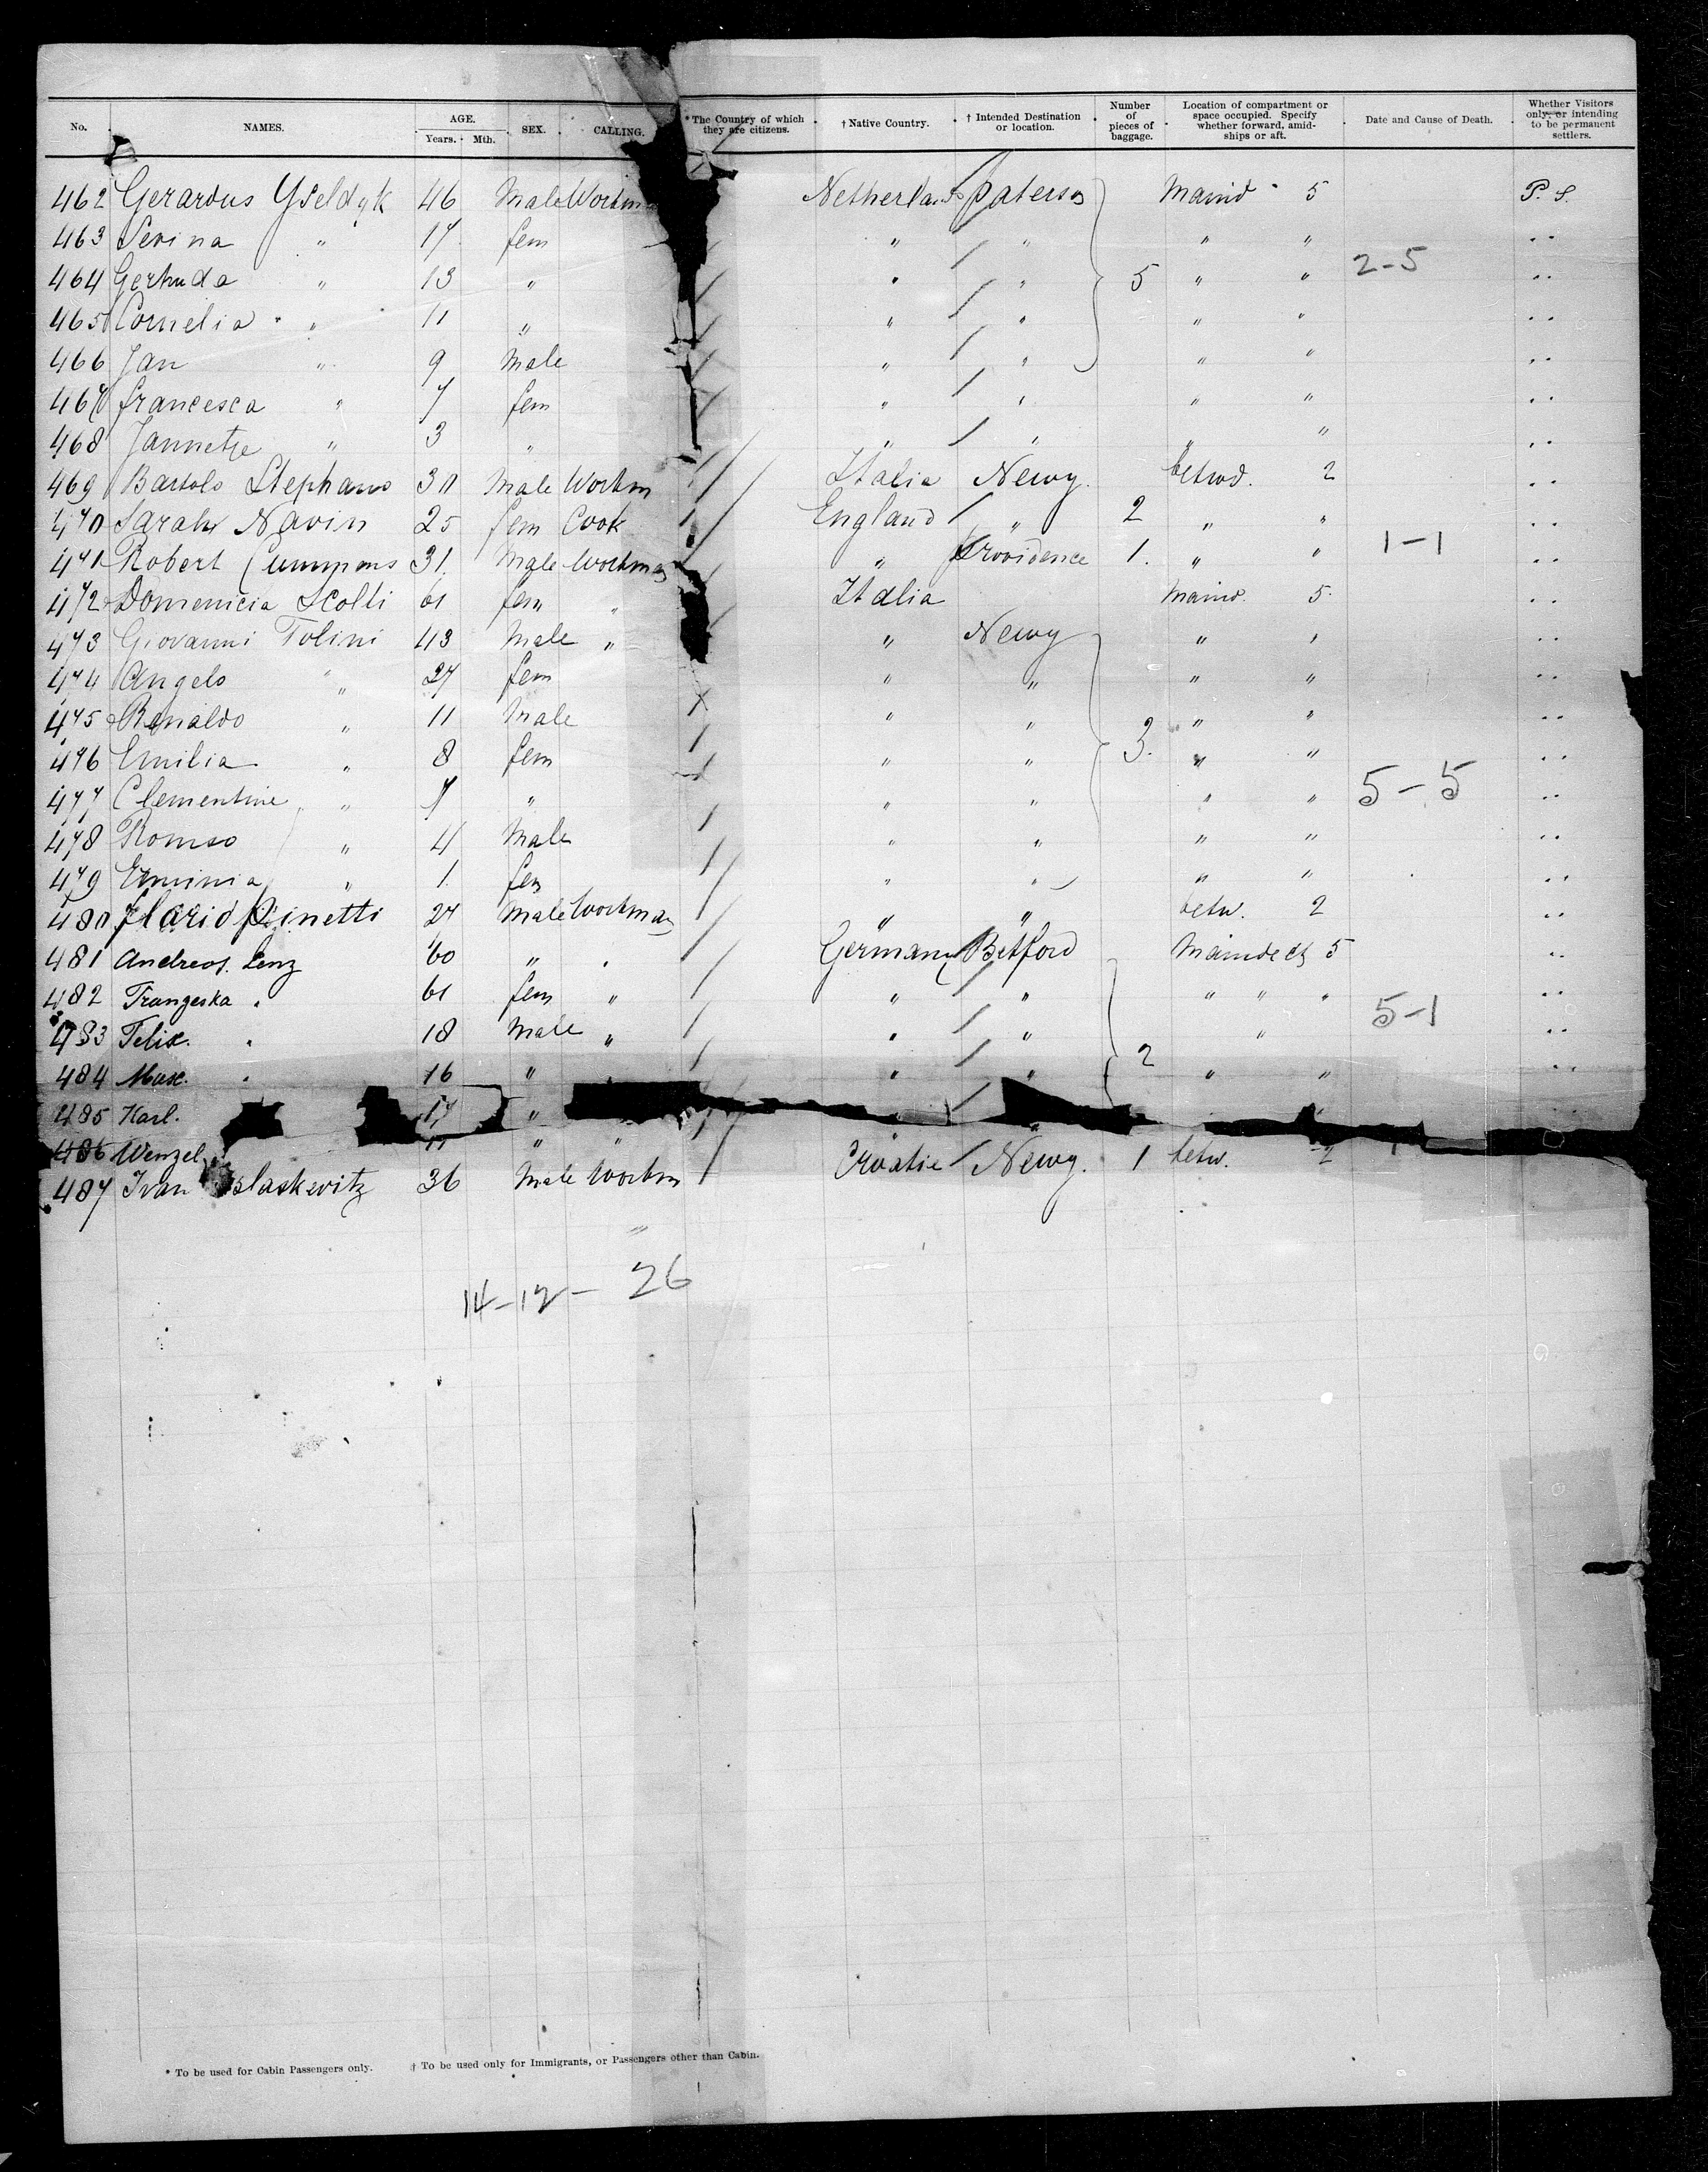 No. NAMES. AGE. Years. Mth. SEX. CALLING. *The Country of which they are citizens. †Native Country. †Intended Destination or location. Number of pieces of baggage. Location of compartment or space occupied. Specify whether forward, amid-ships or aft. Date and Cause of Death. Whether Visitors only, or intending to be permanent settlers.
462 Gerardus Yseldyk 46 Male Workm Netherlands Paterson Maind 5 P. S.
463 Serina " 17 fem " " " " ..
464 Gertruda " 13 " " " 5 " " 2-5 ..
465 Cornelia " 11 " " " " " ..
466 Jan " 9 Male " " " " ..
467 Francesca " 7 fem " " " " ..
468 Jannetje " 3 " " " " " ..
469 Bartolo Stephano 30 Male Workm Italia Newy. betwd. 2 ..
470 Sarah Navin 25 fem Cook England " 2 " " ..
471 Robert Cummons 31. Male Workman " Providence 1. " " 1-1 ..
472 Domenicia Scolli 61 fem " Italia Maind. 5. ..
473 Giovanni Tolini 43 Male " " Newy " " ..
474 Angelo " 27 fem " " " " ..
475 Renaldo " 11 Male " " " " ..
476 Emilia " 8 fem " " 3. " " ..
477 Clementine " 7 " " " " " 5-5 ..
478 Romeo " 4 Male " " " " ..
479 Erminia " 1 fem " " " " ..
480 Florid Pinetti 27 Male Workman " " betw. 2 ..
481 Andreas Lenz 60 " " Germany Betford Maindeck 5 ..
482 Franzeska " 61 fem " " " " " " ..
483 Felix. " 18 Male " " " " 5-1 ..
484 Max. " 16 " " " " 2 " " ..
485 Karl. 14 "
486 Wenzel 11 " "
487 Ivan slaskevitz 36 Male Workm Croatie Newy. 1 betw. 2
14-12- 26
* To be used for Cabin Passengers only. † To be used only for Immigrants, or Passengers other than Cabin.